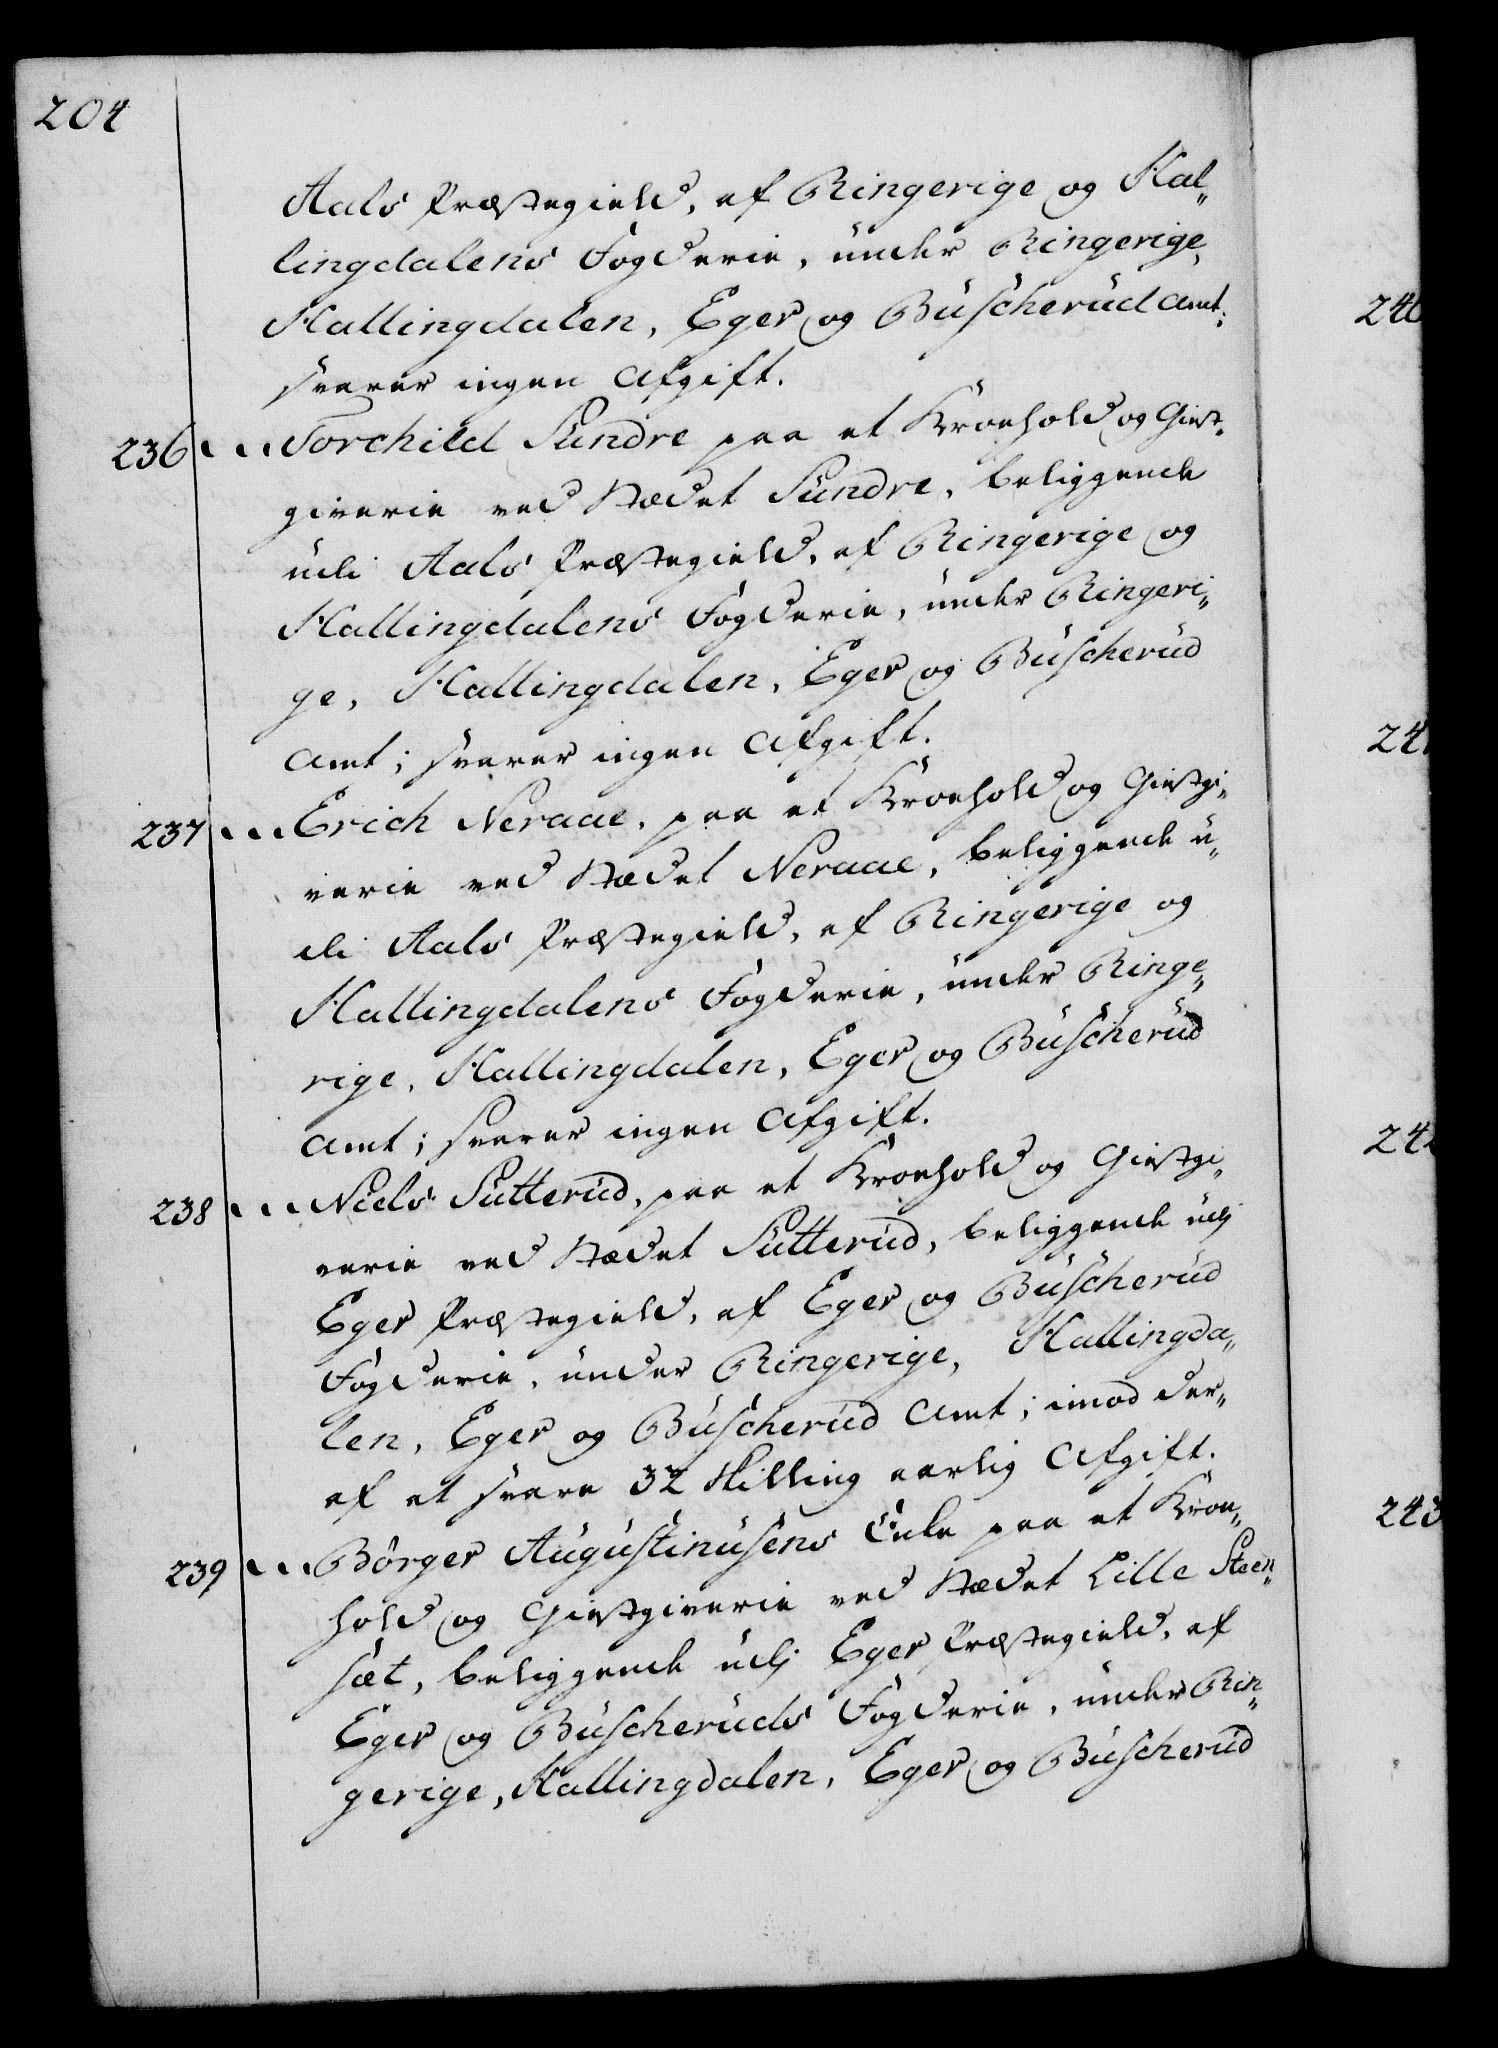 204
Aals Præstegield, af Ringerige og Hal„
lingdalens Fogderie, under Ringerige,
Hallingdalen, Eger og Buscherud Amt;
svarer ingen Afgift.
236 Torchild Sundre paa et Kroehold og Giest„
giverie ved Stædet Sundre, beliggende
udi Aals Præstegield, af Ringerige og
Hallingdalens Fogderie, under Ringeri„
ge, Hallingdalen, Eger og Buscherud
Amt; svarer ingen Afgift.
237 Erich Neraae, paa et Kroehold og Giestgi„
verie ved Stædet Neraae, beliggende u„
di Aals Præstegield, af Ringerige og
Hallingdalens Fogderie, under Ringe„
rige, Hallingdalen, Eger og Buscherud
Amt; svarer ingen Afgift.
238 Niels Sutterud, paa et Kroehold og Giestgi„
verie ved Stædet Sutterud, beliggende udj
Eger Præstegield, af Eger og Buscherud
Fogderie, under Ringerige, Hallingda„
len, Eger og Buscherud Amt; imod der„
af at svare 32 Skilling aarlig Afgift.
239 Börger Augustinusens Enke paa et Kroe„
hold og Giestgiverie ved Stædet Lille Steen„
sæt, beliggende udj Eger Præstegield, af
Eger og Buscheruds Fogderie, under Rin„
gerige, Hallingdalen, Eger og Buscherud
243